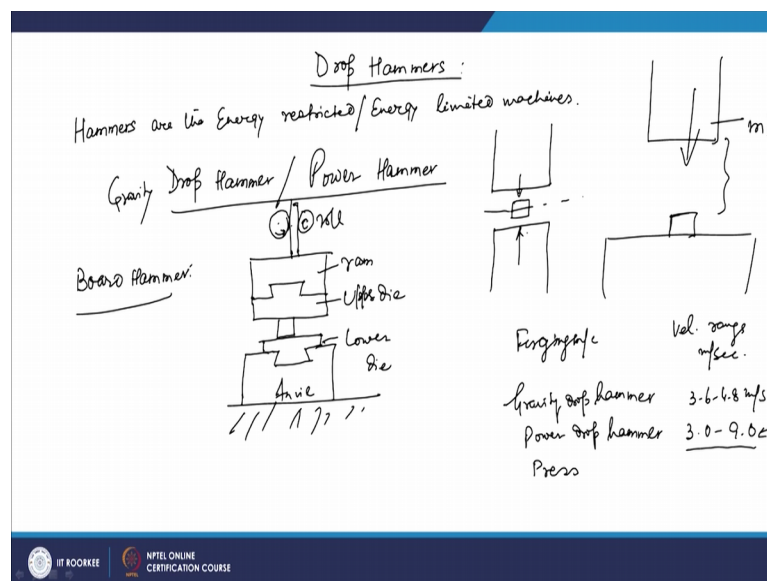 Drop Hammers:
Hammers are the Energy restricted/Energy limited machines.
Gravity Drop Hammer / Power Hammer
Board Hammer:
roll
ram
Upper die
Lower die
Anvil
m
Forging m/c
Vel. range m/sec.
Gravity drop hammer 3.6-4.8 m/s
Power drop hammer 3.0-9.0
Press
IIT ROORKEE
NPTEL ONLINE
CERTIFICATION COURSE